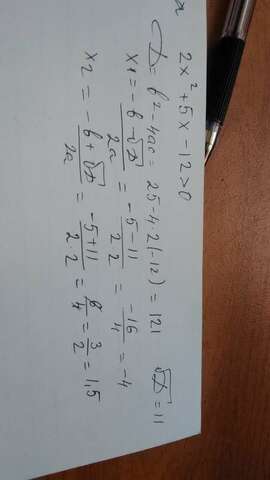 2x² + 5x - 12 > 0
D = b² - 4ac = 25 - 4·2(-12) = 121 √D = 11
x₁ = (-b - √D)/2a = (-5 - 11)/2·2 = -16/4 = -4
x₂ = (-b + √D)/2a = (-5 + 11)/2·2 = 6/4 = 3/2 = 1,5